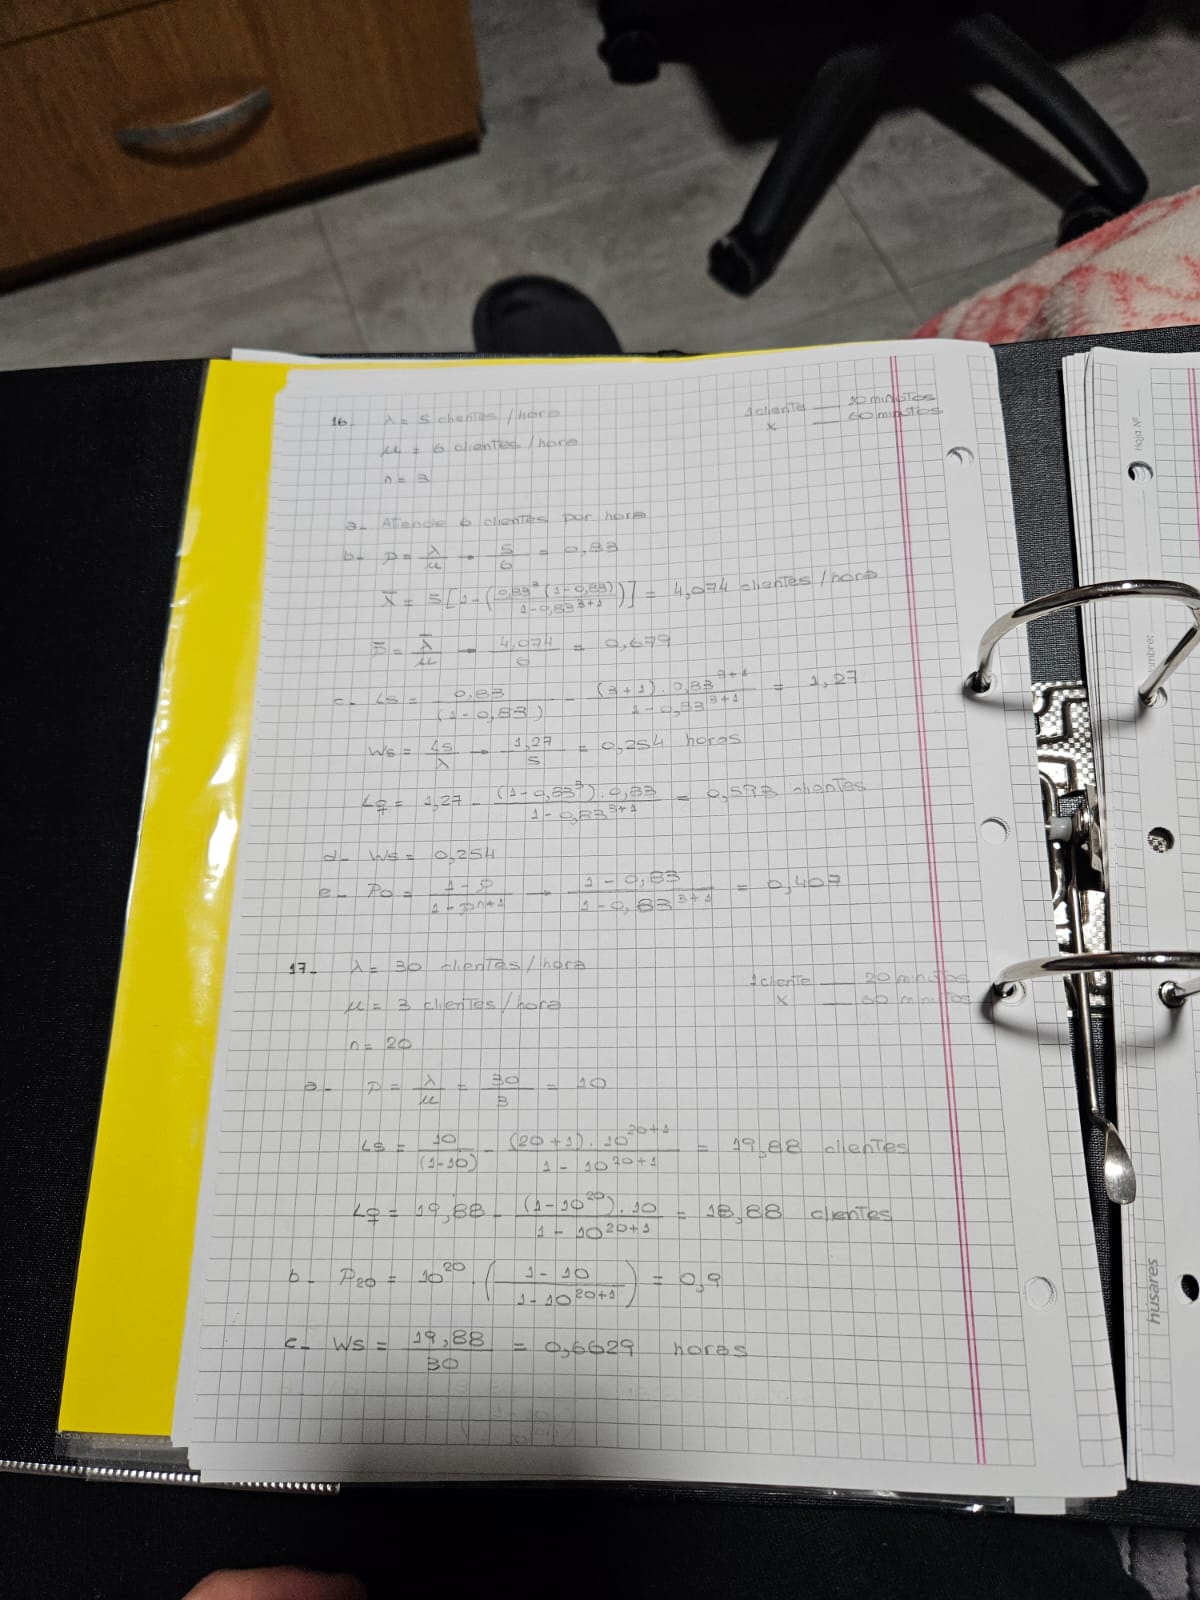 16- λ = 5 clientes / hora
1 cliente — 10 minutos
x — 60 minutos
μ = 6 clientes / hora
n = 3
a- Atiende 6 clientes por hora
b- ρ = λ/μ → 5/6 = 0,83
λ̄ = 5[1-(0,83³(1-0,83)/1-0,83³⁺¹)] = 4,074 clientes / hora
ρ̄ = λ̄/μ → 4,074/6 = 0,679
c- Ls = 0,83/(1-0,83) - (3+1).0,83³⁺¹/1-0,83³⁺¹ = 1,27
Ws = Ls/λ → 1,27/5 = 0,254 horas
Lq = 1,27 - (1-0,83³).0,83/1-0,83³⁺¹ = clientes
d- Ws = 0,254
e- P0 = 1-ρ/1-ρⁿ⁺¹ → 1-0,83/1-0,83³⁺¹ = 0,407
17- λ = 30 clientes / hora
1 cliente — 20 minutos
x — 60 minutos
μ = 3 clientes / hora
n = 20
a- ρ = λ/μ = 30/3 = 10
Ls = 10/(1-10) - (20+1).10²⁰⁺¹/1-10²⁰⁺¹ = 19,88 clientes
Lq = 19,88 - (1-10²⁰).10/1-10²⁰⁺¹ = 18,88 clientes
b- P20 = 10²⁰.(1-10/1-10²⁰⁺¹) = 0,9
c- Ws = 19,88/30 = 0,6629 horas
Hoja Nº
husares